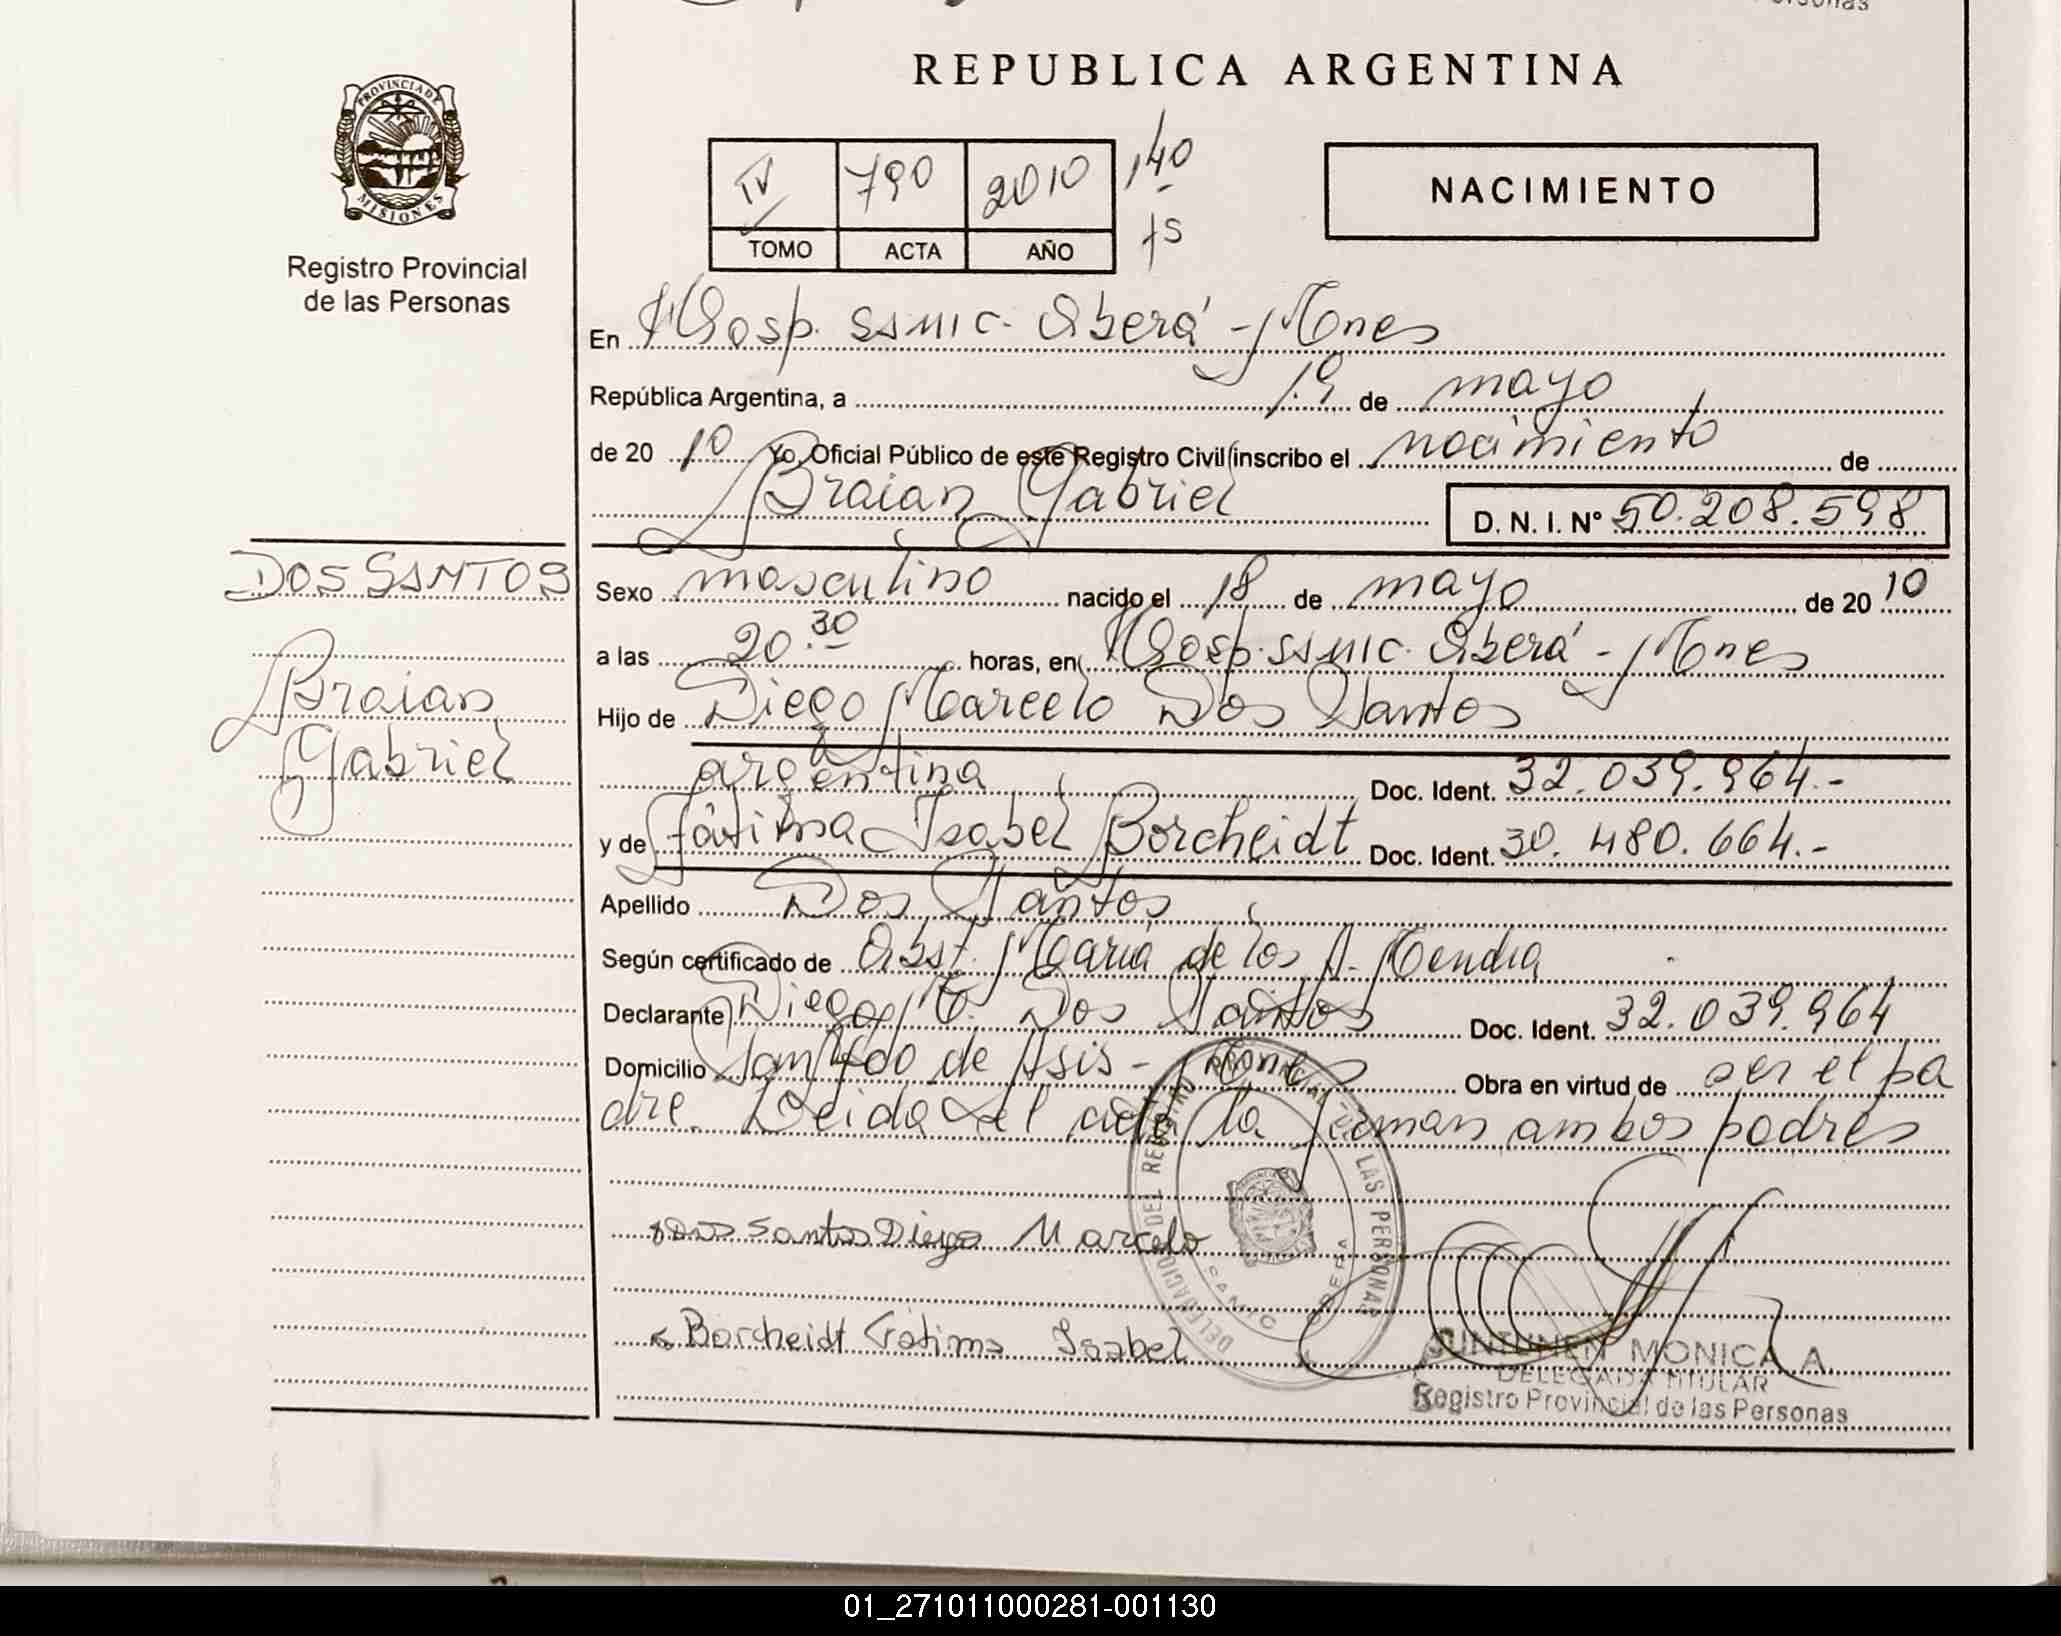 REPUBLICA ARGENTINA
PROVINCIA DE
MISIONES
Registro Provincial
de las Personas
IV 790 2010 140
TOMO ACTA AÑO
NACIMIENTO
En Hosp. SSMIC. Oberá - Mnes
República Argentina, a 19 de mayo
de 2010 Yo, Oficial Público de este Registro Civil inscribo el nacimiento de
Braian Gabriel D. N. I. Nº 50.208.598
DOS SANTOS
Braian
Gabriel
Sexo masculino nacido el 18 de mayo de 2010
a las 20.30 horas, en Hosp. SSMIC. Oberá - Mnes
Hijo de Diego Marcelo Dos Santos
argentina Doc. Ident. 32.039.964.-
y de Fátima Isabel Borcheidt Doc. Ident. 30.480.664.-
Apellido Dos Santos
Según certificado de Obst. María de los A. Mendia
Declarante Diego M. Dos Santos Doc. Ident. 32.039.964
Domicilio San Fco de Asis - Mnes Obra en virtud de ser el pa
dre. Leida el acta la firman ambos padres
DELEGACION DEL REGISTRO PROVINCIAL DE LAS PERSONAS
OBERA
Dos Santos Diego Marcelo
Borcheidt Fátima Isabel
MONICA A.
DELEGADA TITULAR
Registro Provincial de las Personas
01_271011000281-001130